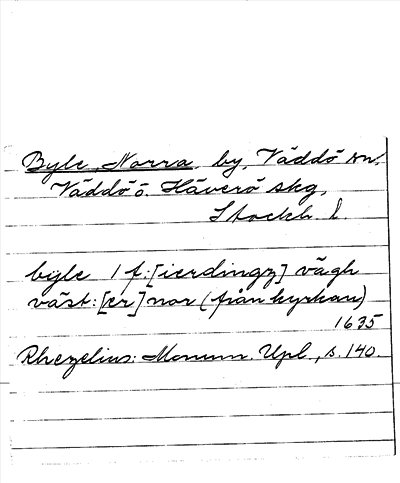 Byle, Norra, by, Väddö sn.
Väddö o. Häverö skg,
Stockh. l
byle 1 f:[ierdingz] vägh
väst:[er] nor (från kyrkan)
1635
Rhezelius: Monum. Upl., s. 140.